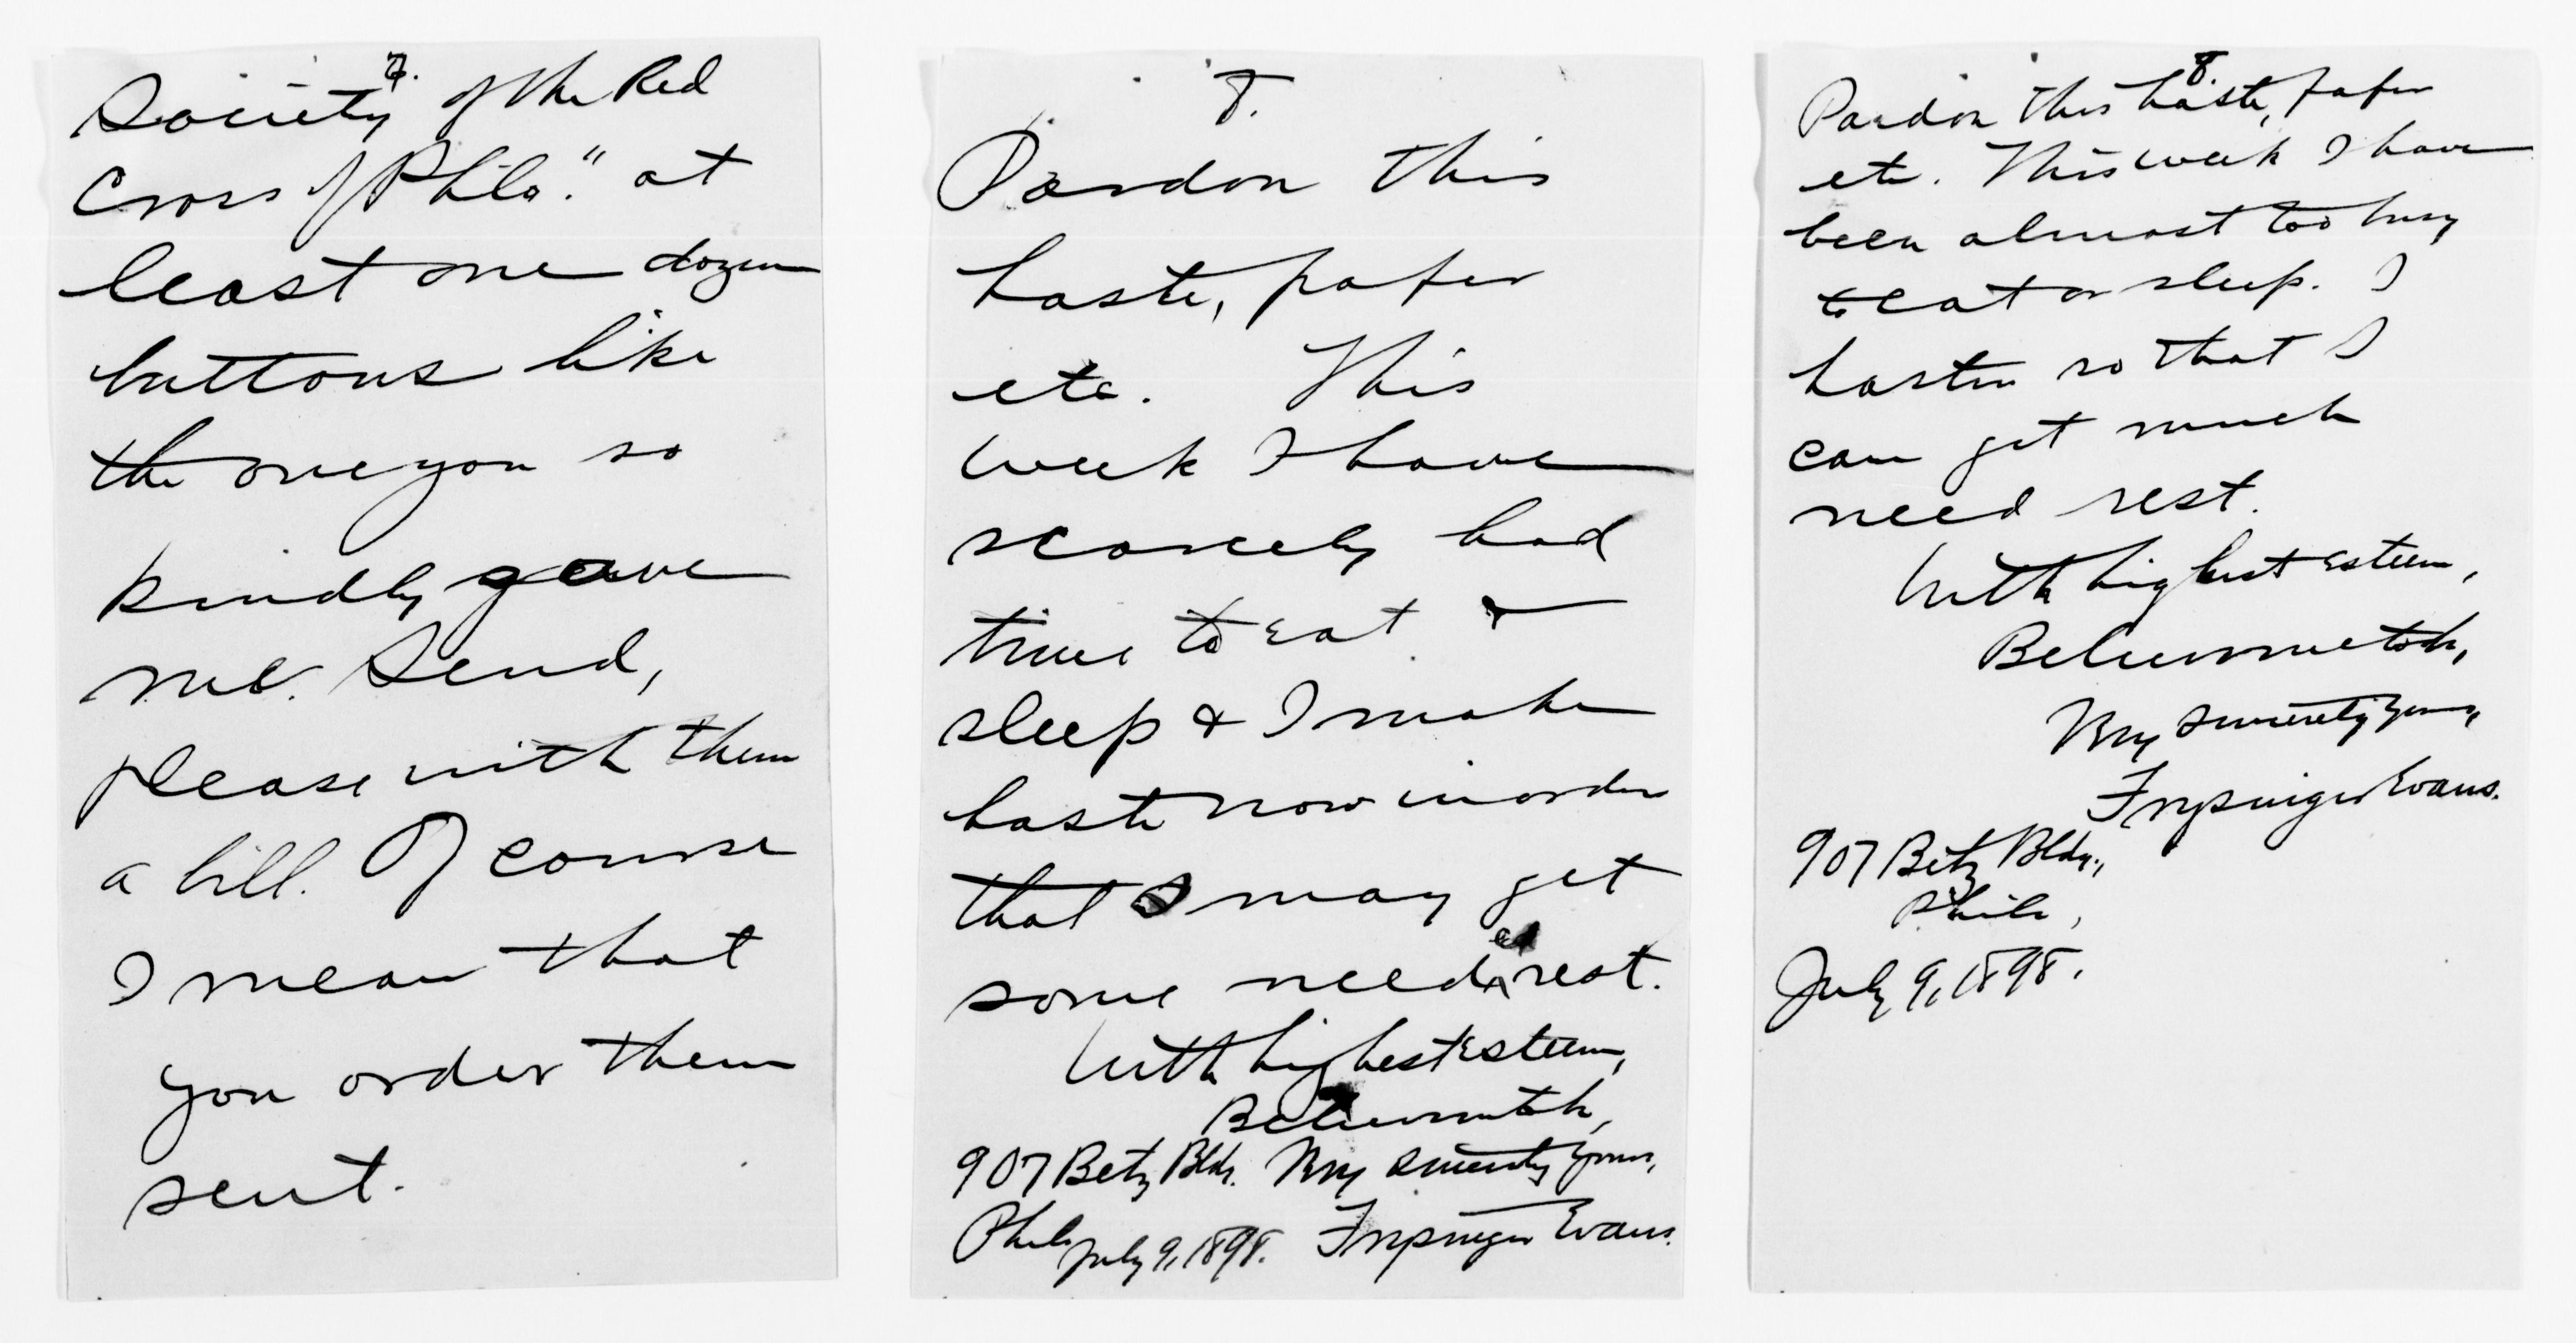 7.
Society of the Red
Cross of Phila." at
least one dozen
buttons like
the one you so
kindly gave
me. Send,
please with them
a bill. Of course
I mean that
you order them
sent.
8.
Pardon this
haste, paper
etc. This
week I have
scarcely had
time to eat or
sleep & I make
haste now in order
that I may get
some needed rest.
With highest esteem,
Believe me to be,
907 Betz Bldg. Very sincerely yours,
Phila July 9, 1898. Evans.
8.
Pardon this haste, paper
etc. This week I have
been almost too busy
to eat or sleep. I
hasten so that I
can get much
need rest.
With highest esteem,
Believe me to be,
Very sincerely yours,
Evans.
907 Betz Bldg.,
Phila,
July 9, 1898.